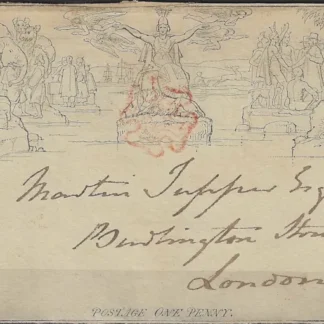 Martin Tupper Esq
Burlington
London
POSTAGE ONE PENNY.